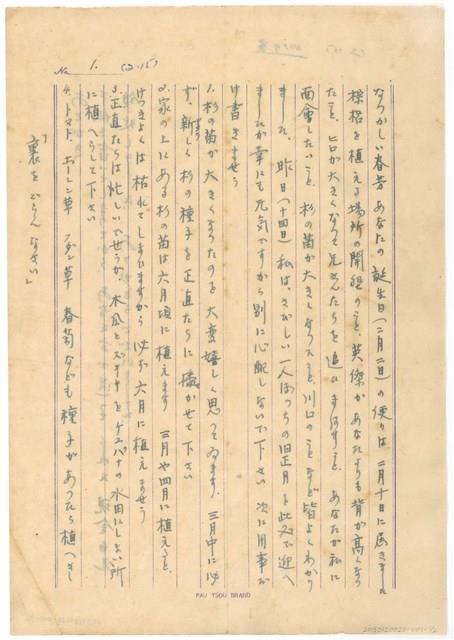 No 1. (2.15)
なつかしい春芳 あなたの誕生日(二月二日)の便りは、二月十日に届きました
を植える場所の開墾のこと、英傑があなたよりも背が高くなっ
たこと、ヒロが大きくなって兄さんたちを追ひまはすこと、あなたが私に
面會したいこと、杉の苗が大きくなつたこと、川口のことなど皆よくわかり
ました、昨日(十四日)私は、さびしい一人ぼっちの旧正月を此処で迎へ
ましたが幸にも元気ですから別に心配しないで下さい 次に用事だ
け書きませう
1.杉の苗が大きくなつたのを大変嬉しく思ってゐます、三月中に必
ず、新しく杉の種子を正直たちに播かせて下さい
2.家の上にある杉の苗は六月頃に植えます 三月や四月に植えると、
けつきよくは枯れてしまひますから 必ず六月に植えませう
3.正直たちは忙しいでせうが、木瓜とスイカを の水田によい所
に植へらして下さい
4.トマト、ホーレン草 フダン草 春菊なども種子があつたら植へなさい
「裏をごらんなさい」
PAU TSOU BRAND